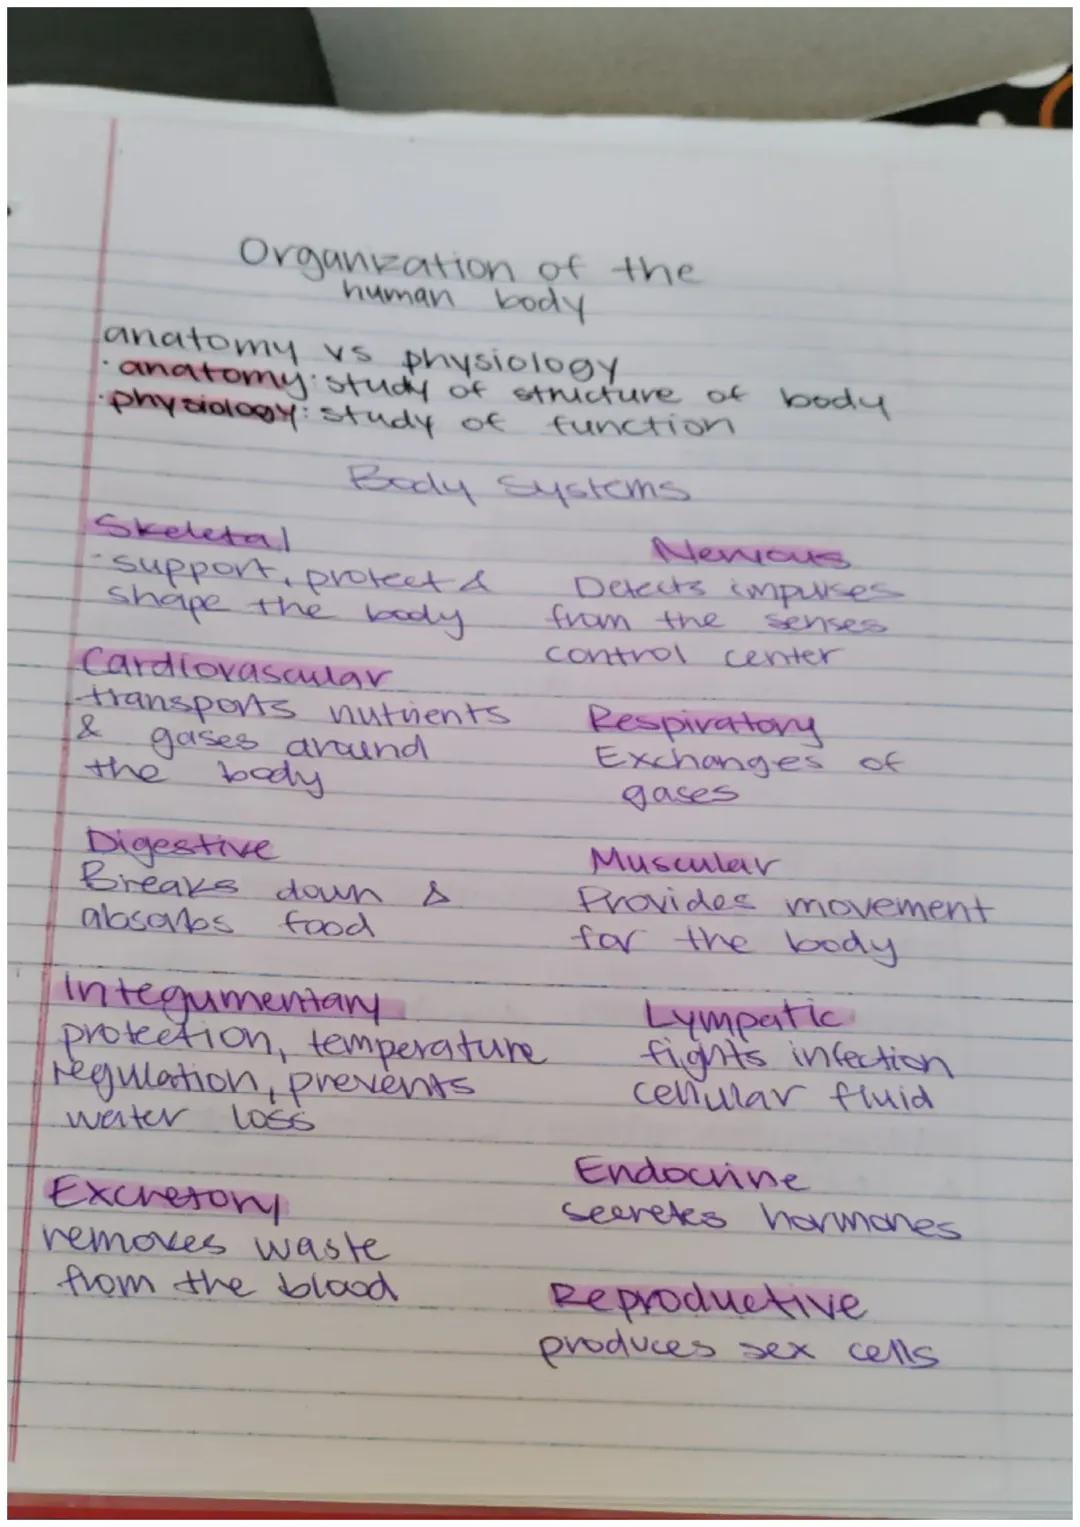 Organization of the
human body
anatomy vs physiology
· anatomy: study of structure of body
· physiology: study of function
Body Systems
Skeletal
- support, protect &
shape the body
Cardiovascular
- transports nutrients
& gases around
the body
Digestive
Breaks down &
absorbs food
Integumentary
protection, temperature
regulation, prevents
water loss
Excretory
removes waste
from the blood
Nervous
Detects impulses
from the senses
control center
Respiratory
Exchanges of
gases
Muscular
Provides movement
for the body
Lympatic
fights infection
cellular fluid
Endocrine
secretes hormones
Reproductive
produces sex cells